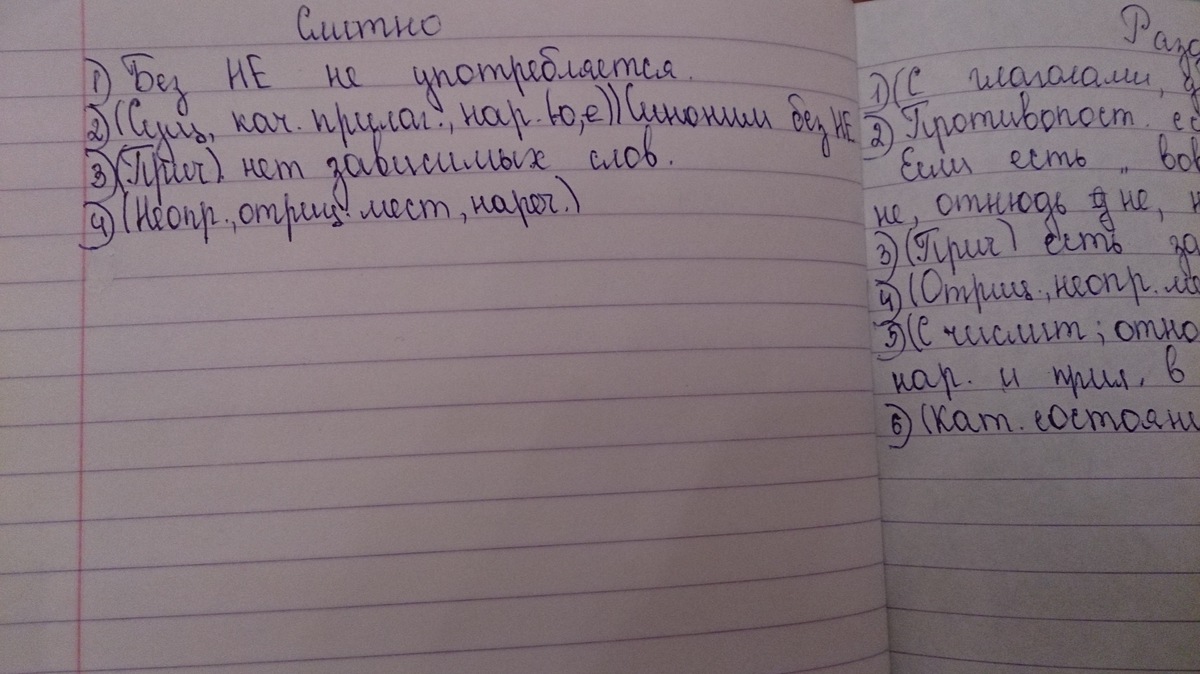 Слитно
1) Без НЕ не употребляется.
2) (Сущ, кач. прилаг., нар. (о,е)) (синоним без НЕ
3) (Прич) нет зависимых слов.
4) (Неопр., отриц. мест, нареч.)
Разд
1) (С глаголами, д
2) Противопост. ес
Если есть „ вов
не, отнюдь не, н
3) (Прич) есть за
4) (Отриц., неопр. ме
5) (С числит; отно
нар. и прил. в
6) (Кат. состояни